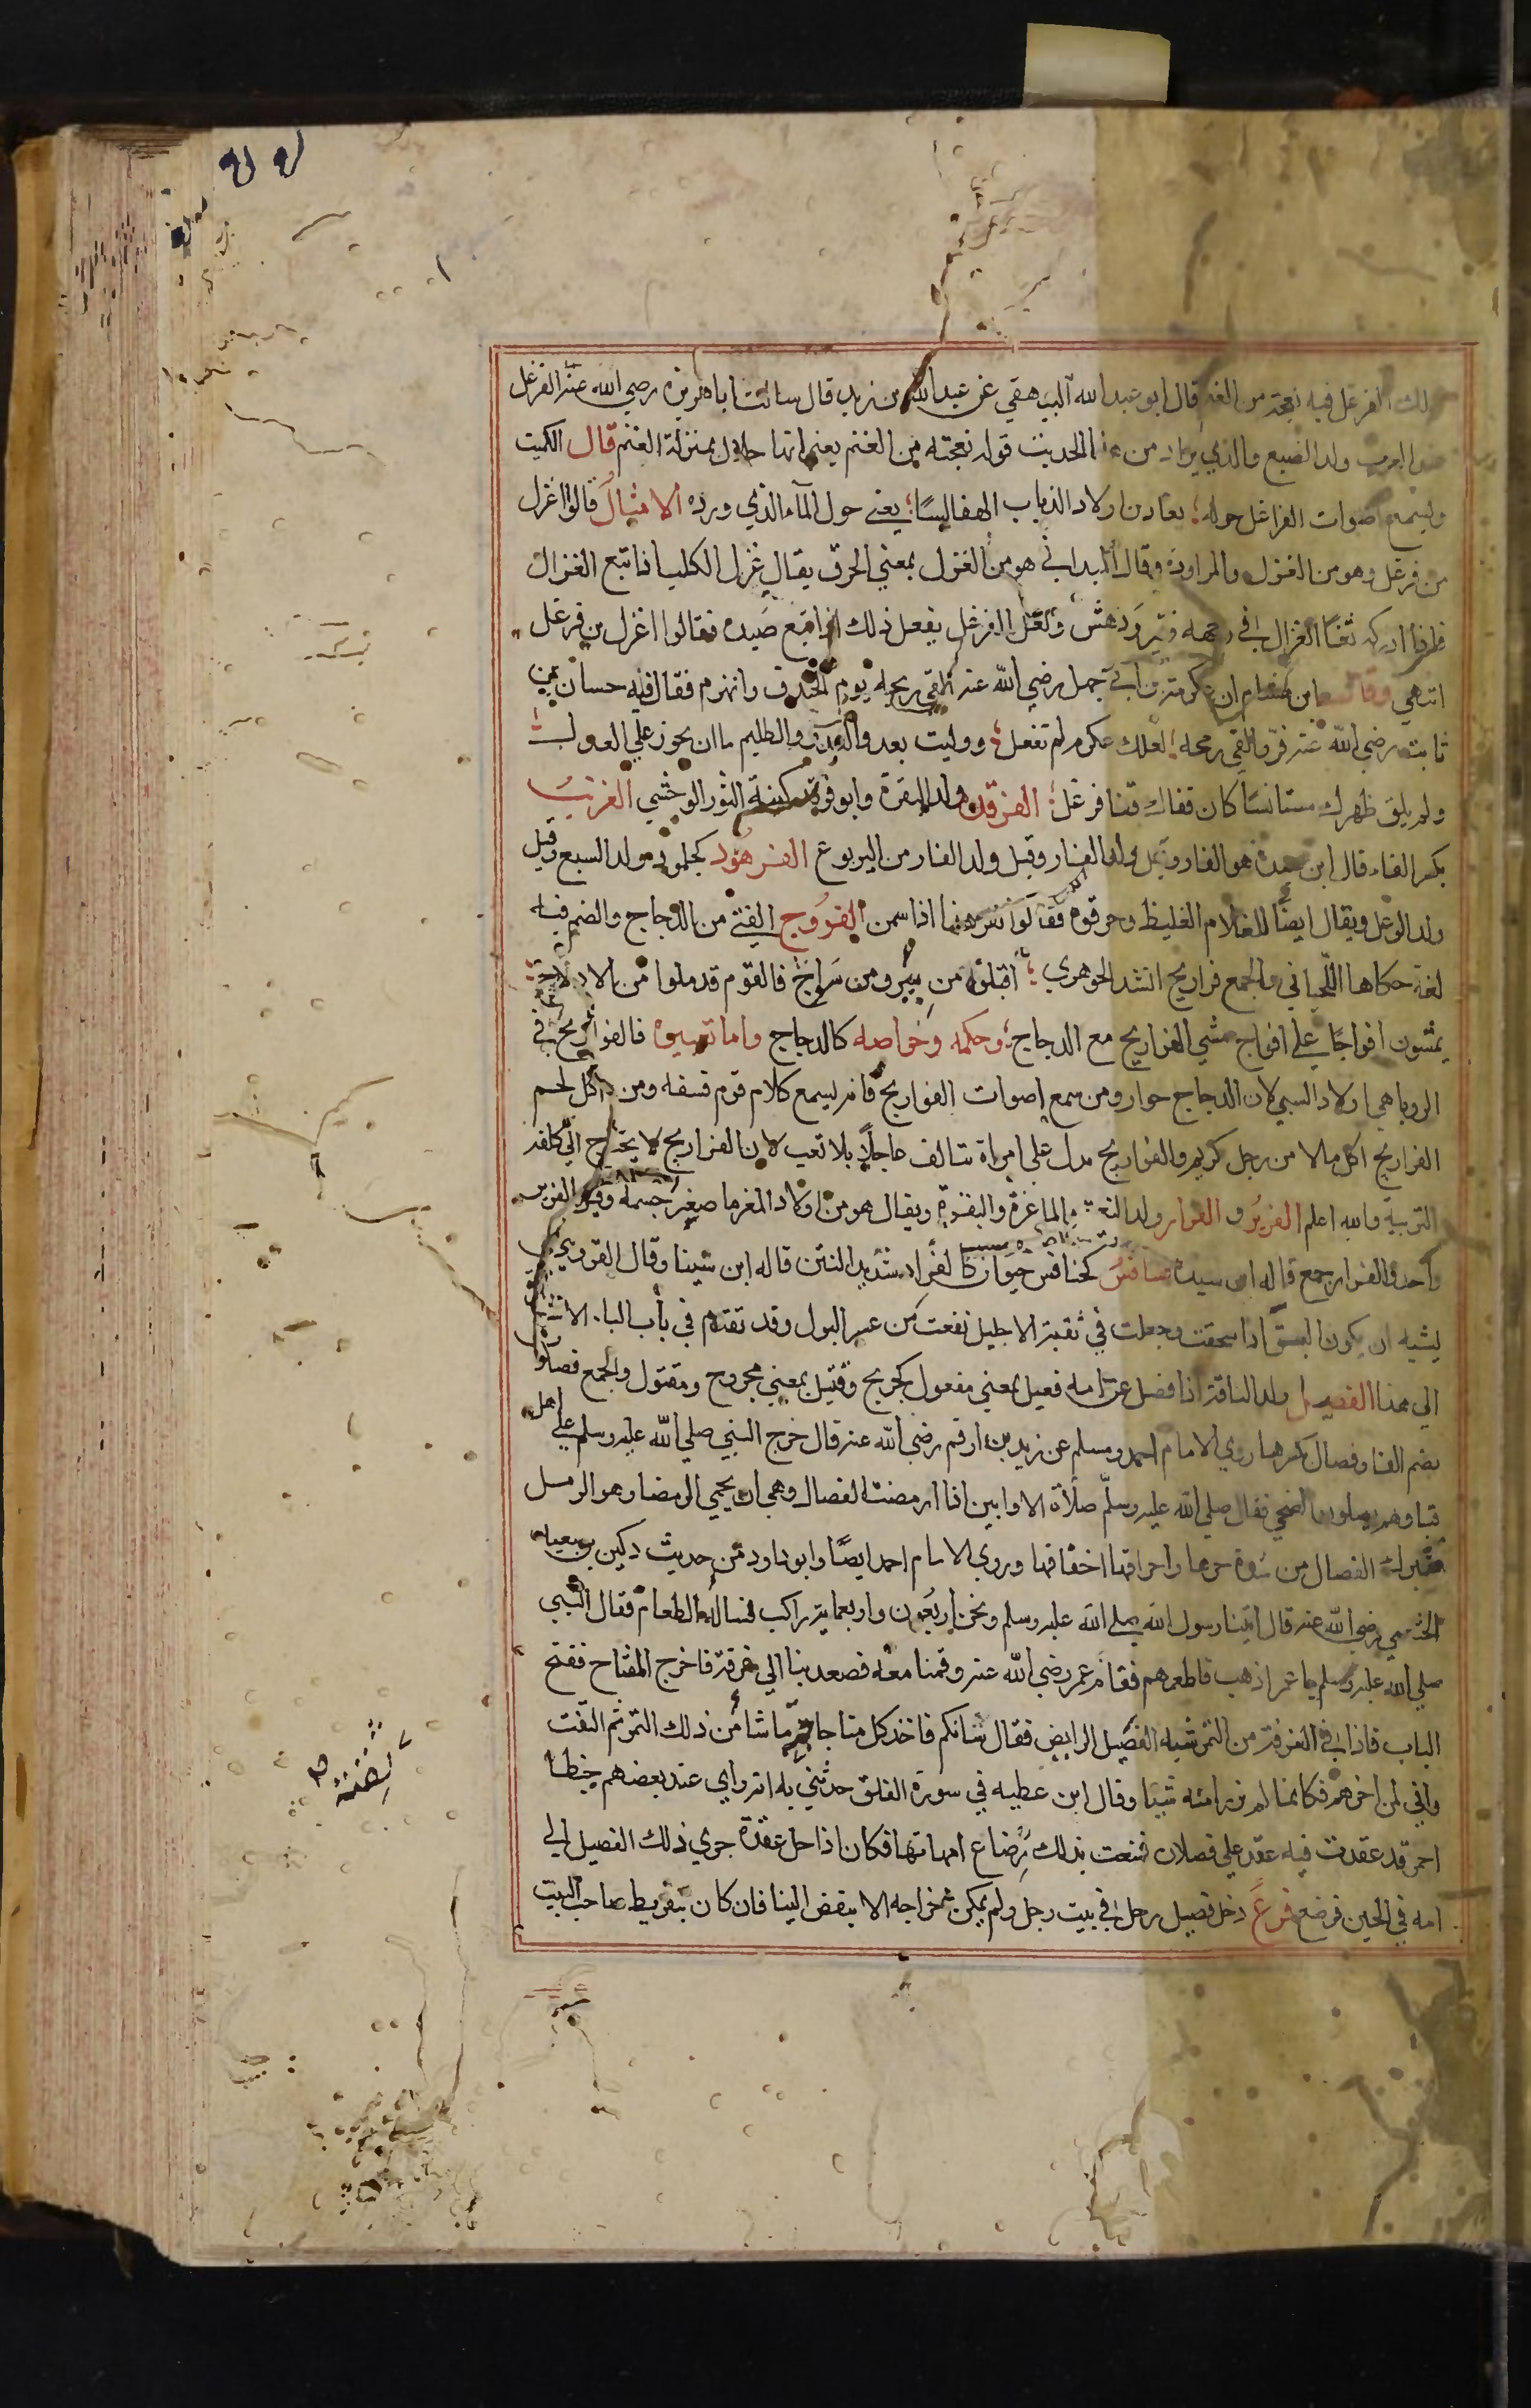 الفرغل فيه نعجة من الغنم قال ابو عبد الله البيهقي عن عبد الله بن زيد قال سالت اباهريرة رضي الله عنه الفرغل
العرب ولد الضبع والذي يراد من الحديث قوله نعجته من الغنم يعني انها حلال بمنزلة الغنم قال الكميت
وتسمع اصوات الفراغل حوله يعني حول المآء الذي ورده الامثال قالوا اغزل
من فرغل وهو من الغزل والمراودة وقال الميداني هو من الغزل بمعني الخرق يقال غزل الكلب اذا تبع الغزال
فاذا ادركه ثغا الغزال في وجهه ففتر ودهش ولعل الفرغل يفعل ذلك اذا تبع صيده فقالوا اغزل من فرغل
انتهي وقال ابن هشام ان عكرمة بن ابي جهل رضي الله عنه القي رمحه يوم الخندق وانهزم فقال فيه حسان بن
ثابت رضي الله عنه فر والقي رمحه لعلك عكرم لم تفعل ووليت تعدو والظليم ما ان يحوز علي العدول
ولم يلق ظهرك مستانسا كان قفاك قفا فرغل الفرقد ولد البقرة وابو فرقد كنية الثور الوحشي الفرنب
بكسر الفاء قال ابن سيدة هو الفار وقيل ولد الفار وقيل ولد الفار من اليربوع الفرهود كجلمود ولد السبع وقيل
ولد الوعل ويقال ايضا للغلام الغليظ وحرقوه فقالوا اذا سمن الفروج الفتي من الدجاج والضم فيه
لغة حكاها اللحياني والجمع فراريج انشد الجوهري اقبلن من بير ومن سواج فالقوم قد ملوا من الادلاج
يمشون افواجا علي افواج مشي الفراريج مع الدجاج وحكمه وخواصه كالدجاج واما تعبيره فالفراريج في
الرويا هي اولاد السبي لان الدجاج جوار ومن سمع اصوات الفراريج فانه ليسمع كلام قوم فسقه ومن اكل لحم
الفراريج اكل مالا من رجل كريم والفراريج تدل علي امراة تتالف عاجلا بلا تعب لان الفراريج لا يحتاج الي كلفة
التربية والله اعلم الفرير والفرار ولد النعجة والماعزة والبقرة ويقال هو من اولاد المعز ما صغر جسمه وقيل الفرير
واحد والفرار جمع قاله ابن سيده فسافس كخنافس حيوان كالقراد شديد النتن قاله ابن سينا وقال القزويني
يشبه ان يكون البق اذا سحقت وجعلت في ثقبة الاحليل نفعت من عسر البول وقد تقدم في باب الباء الاشارة
الي هذا الفصيل ولد الناقة اذا فصل عن امه فعيل بمعني مفعول كجريح وقتيل بمعني مجروح ومقتول والجمع فصلان
بضم الفا وفصال بكسرها روي الامام احمد ومسلم عن زيد بن ارقم رضي الله عنه قال خرج النبي صلي الله عليه وسلم علي اهل
قبا وهم يصلون الضحي فقال صلي الله عليه وسلم صلاة الاوابين اذا ارمضت الفصال وهي ان يحمي الرمضا وهو الرمل
فتبرك الفصال من شدة حرها واحراقها اخفافها وروي الامام احمد ايضا وابو داود من حديث دكين بن سعيد
الخثعمي رضي الله عنه قال اتينا رسول الله صلي الله عليه وسلم ونحن اربعون واربعماية راكب نساله الطعام فقال النبي
صلي الله عليه وسلم يا عمر اذهب فاطعمهم فقام عمر رضي الله عنه وقمنا معه فصعد بنا الي غرفة فاخرج المفتاح ففتح
الباب فاذا في الغرفة من التمر شبه الفصيل الرابض فقال شانكم فاخذ كل منا حاجته ما شا من ذلك التمر ثم التفت
واني لمن اخرهم فكاننا لم نرزامنه شيا وقال ابن عطيه في سورة الفلق حدثني ثقه انه راي عند بعضهم خيطا
احمر قد عقدت فيه عقد علي فصلان فمنعت بذلك رضاع امهاتها فكان اذا حل عقدة جري ذلك الفصيل الي
امه في الحين فرضع فرع دخل فصيل رجل في بيت رجل ولم يمكن اخراجه الا بنقض البنا فان كان بتفريط صاحب البيت